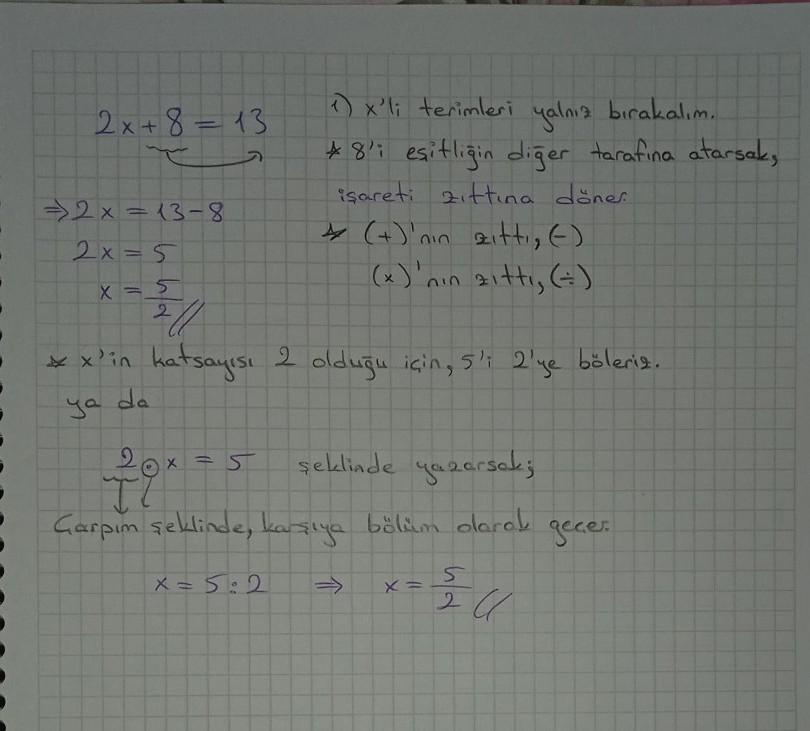 2x + 8 = 13
1) x'li terimleri yalnız bırakalım.
* 8'i eşitliğin diğer tarafına atarsak,
işareti zıttına döner.
⇒ 2x = 13 - 8
* (+)'nın zıttı, (-)
2x = 5
(x)'nın zıttı, (÷)
x = 5/2 //
* x'in katsayısı 2 olduğu için, 5'i 2'ye böleriz.
ya da
2 . x = 5 şeklinde yazarsak;
Çarpım şeklinde, karşıya bölüm olarak geçer.
x = 5 : 2 ⇒ x = 5/2 //